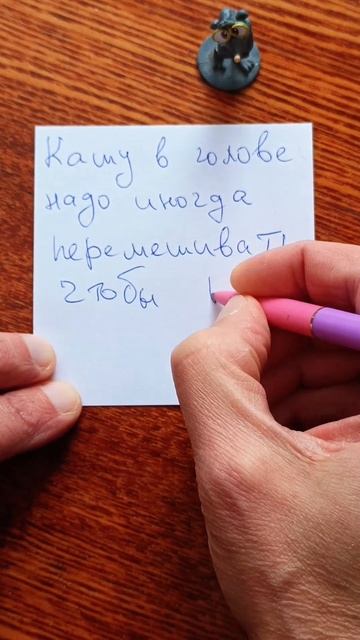 Кашу в голове
надо иногда
перемешивать
чтобы